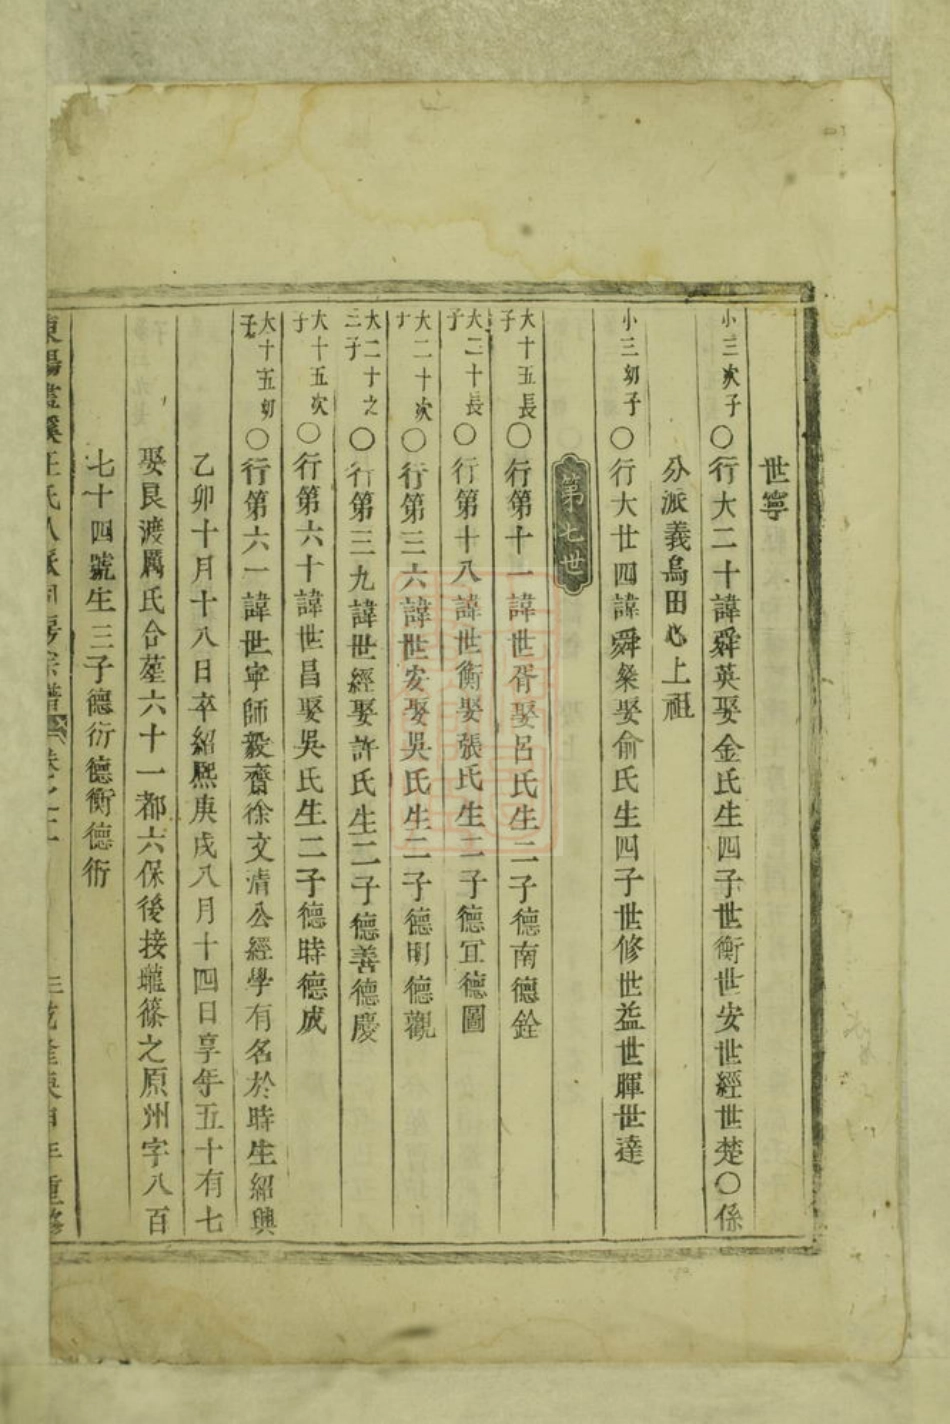 世寧
小三次子〇行大二十諱舜英娶金氏生四子世衡世安世經世楚〇係
分派義烏田心上祖
小三幼子〇行大廿四諱舜燊娶俞氏生四子世修世益世暉世達
第七世
大十五長子〇行第十一諱世胥娶呂氏生二子德南德銓
大二十長子〇行第十八諱世衡娶張氏生二子德宜德圖
大二十次子〇行第三六諱世安娶吳氏生二子德明德觀
大二十之三子〇行第三九諱世經娶許氏生二子德善德慶
大十五次子〇行第六十諱世昌娶吳氏生二子德時德成
大十五幼子〇行第六一諱世寧師毅齋徐文清公經學有名於時生紹興
乙卯十月十八日卒紹熙庚戌八月十四日享年五十有七
娶良渡厲氏合塟六十一都六保後接嶋篠之原州字八百
七十四號生三子德衍德衡德術